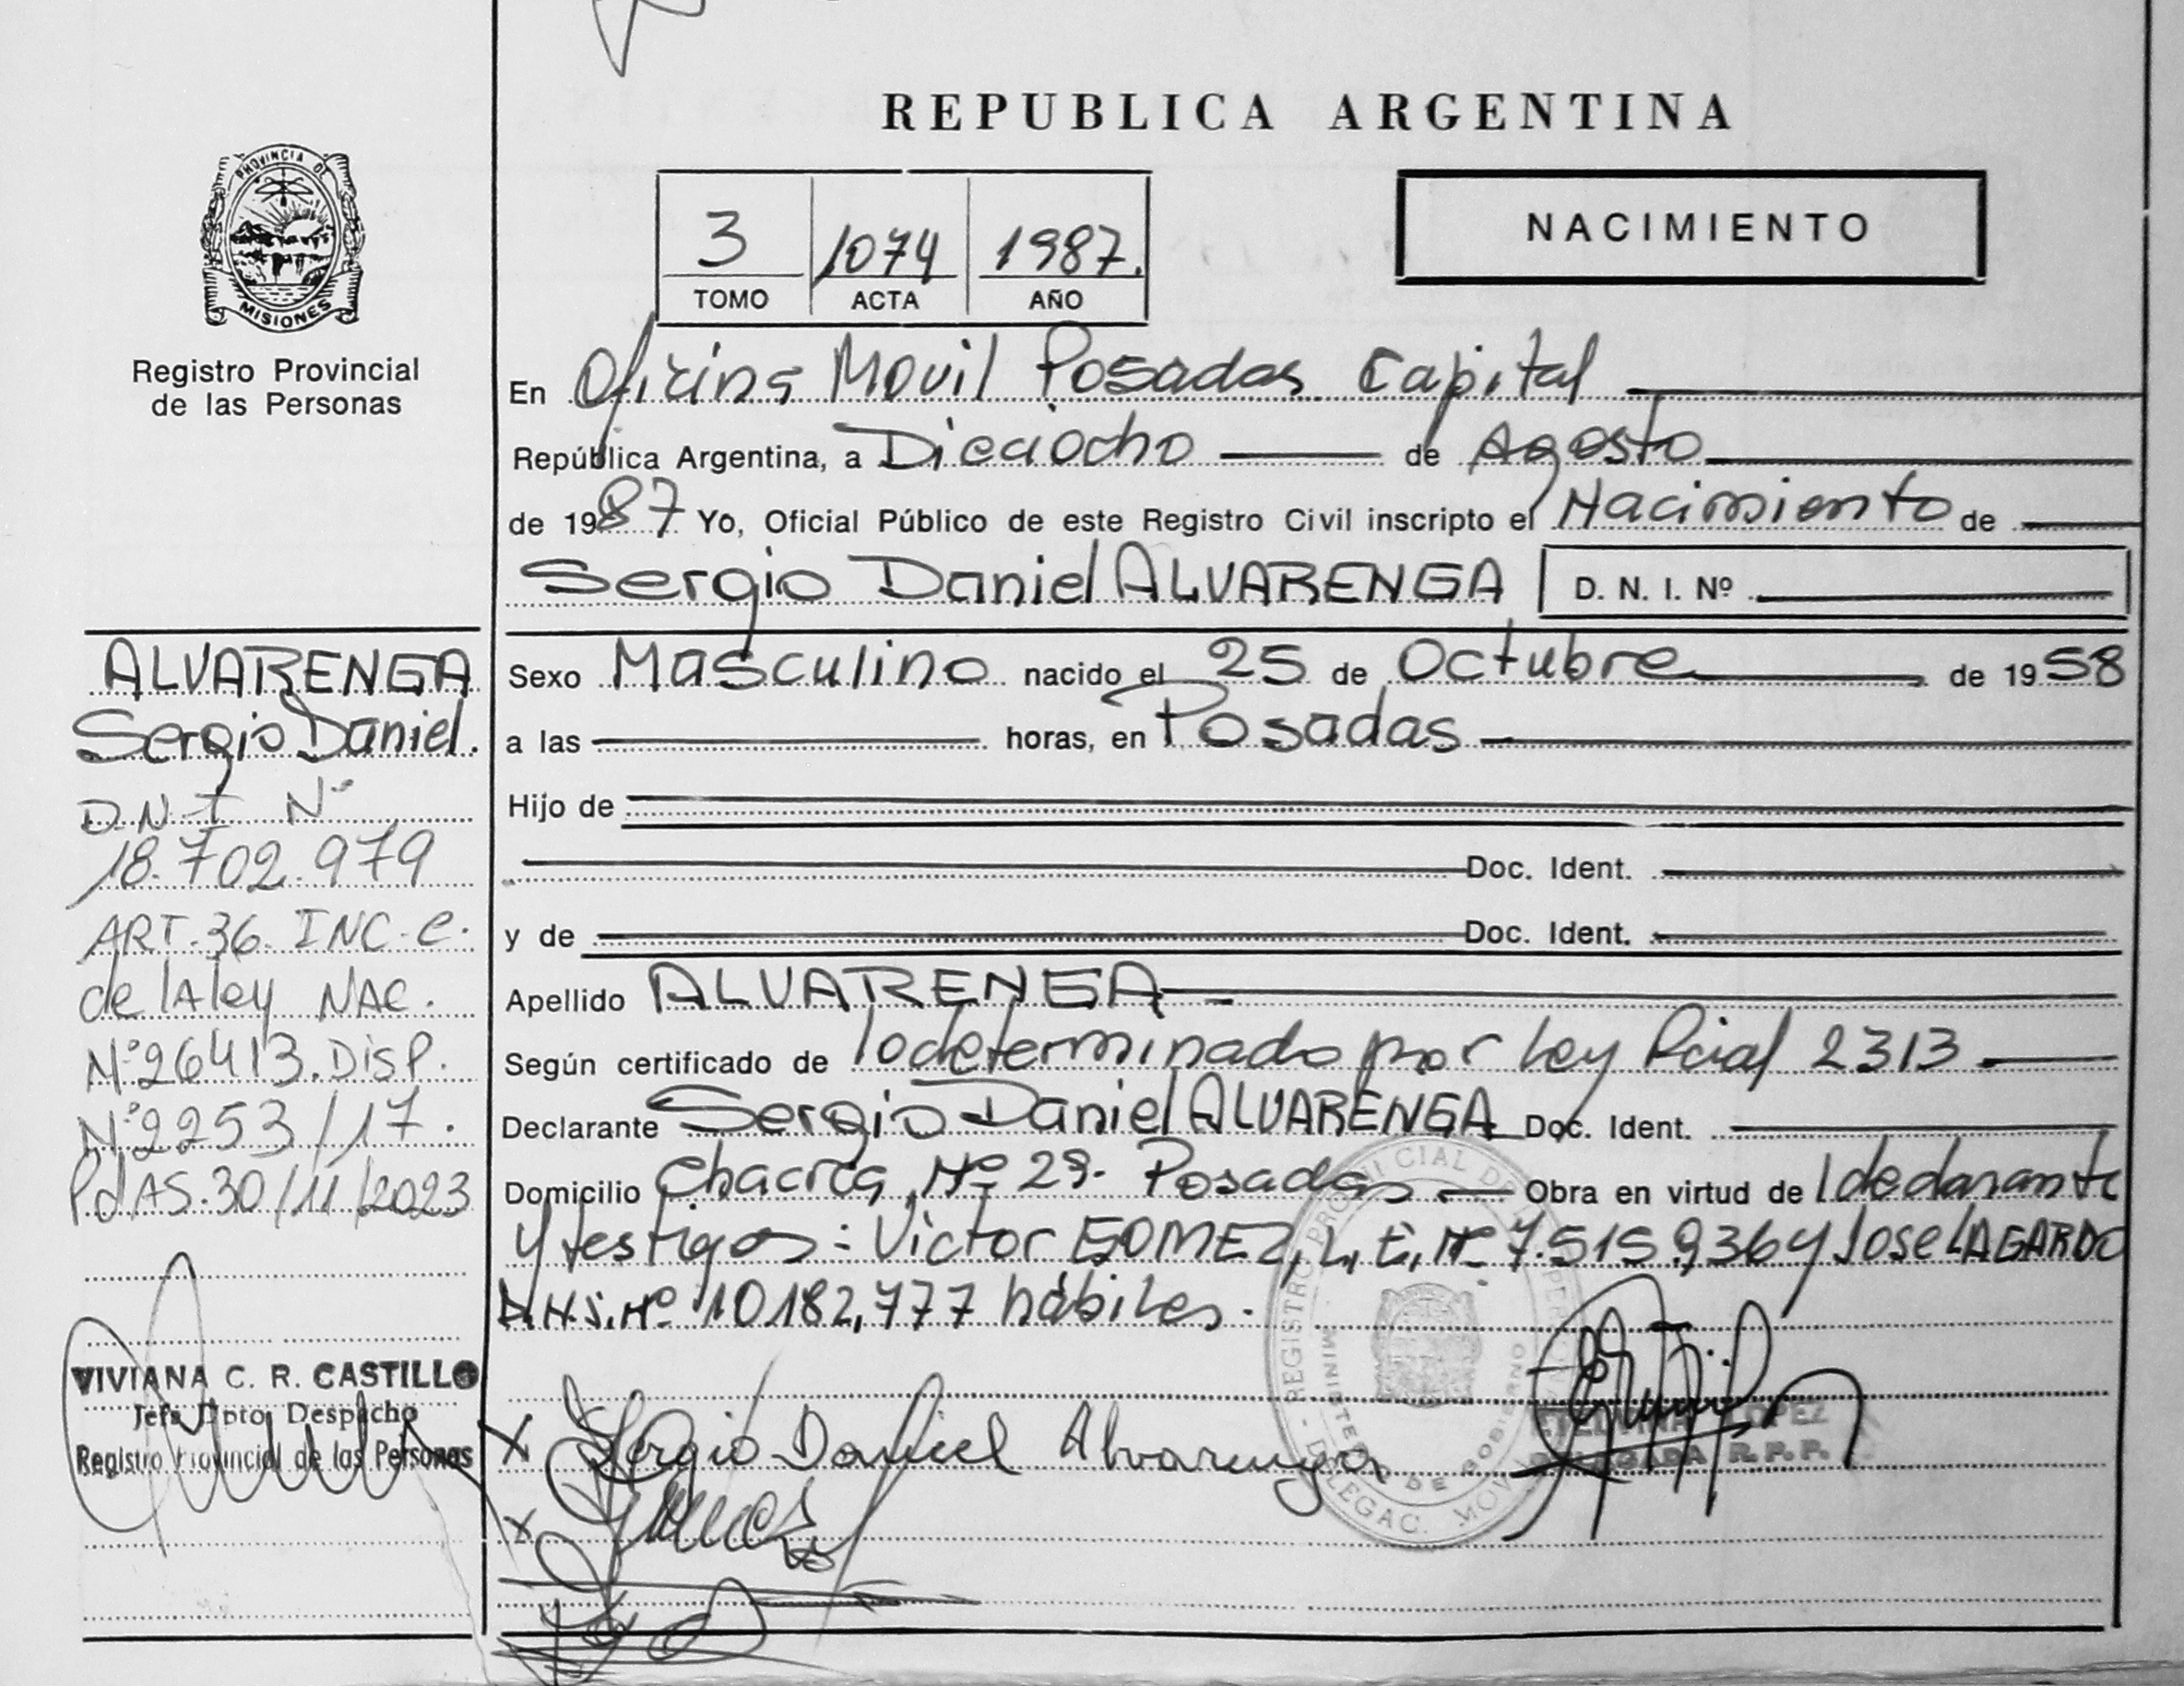 REPUBLICA ARGENTINA
PROVINCIA DE
MISIONES
Registro Provincial
de las Personas
3 1074 1987.
TOMO ACTA AÑO
NACIMIENTO
En Oficina Movil Posadas Capital
República Argentina, a Dieciocho de Agosto
de 1987 Yo, Oficial Público de este Registro Civil inscripto el Nacimiento de
Sergio Daniel ALVARENGA D. N. I. Nº
Sexo Masculino nacido el 25 de Octubre de 1958
a las horas, en Posadas
Hijo de
Doc. Ident.
y de Doc. Ident.
Apellido ALVARENGA
Según certificado de lo determinado por Ley Pcial 2313
Declarante Sergio Daniel ALVARENGA Doc. Ident.
Domicilio Chacra Nº 29. Posadas Obra en virtud de l dedarante
y testigos: Victor GOMEZ, L, E, Nº 7.515.936 y Jose LAGARDO
D.N.I. Nº 10182,777 hábiles.
X Sergio Daniel Alvarenga
X
LOPEZ
DELEGADA R.P.P.
REGISTRO PROVINCIAL DE
MINISTERIO DE GOBIERNO
DELEGAC. MOVIL
ALVARENGA
Sergio Daniel.
D.N.I Nº
18.702.979
ART.36. INC.C.
de lA ley NAC.
Nº26413.DISP.
Nº2253/17.
PdAS.30/11/2023
VIVIANA C. R. CASTILLO
Jefa Dpto. Despacho
Registro Provincial de las Personas